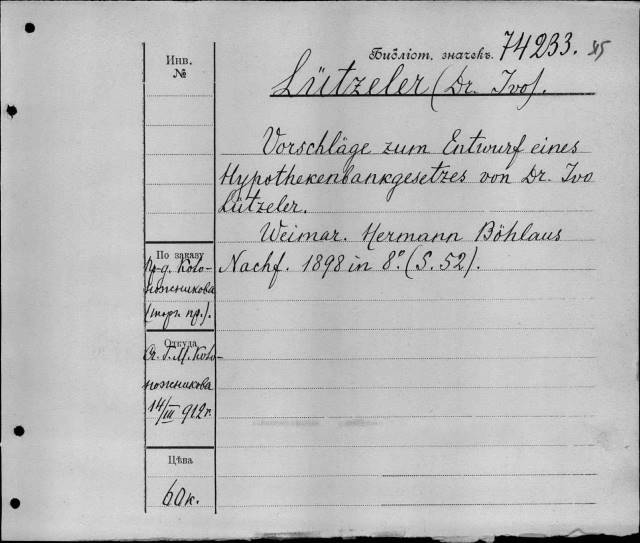 Инв.
№
Библіот. значекъ 74233.
Lützeler (Dr. Ivo).
Vorschläge zum Entwurf eines
Hypothekenbankgesetzes von Dr. Ivo
Lützeler.
Weimar. Hermann Böhlaus
Nachf. 1898 in 8º. (S. 52).
По заказу
Пр-д. Коло-
ножникова
(торг. пр.).
Откуда
От Г. М. Коло-
ножникова
14/III 912 г.
Цѣна
60 к.